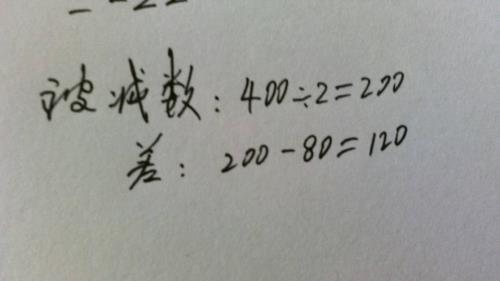 被减数：400÷2=200
差：200-80=120